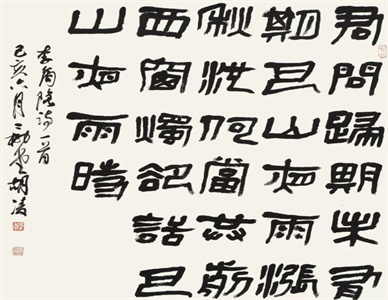 君問歸期未有
期巴山夜雨漲
秋池何當共剪
西窗燭卻話巴
山夜雨時
李商隱詩一首
己亥六月三